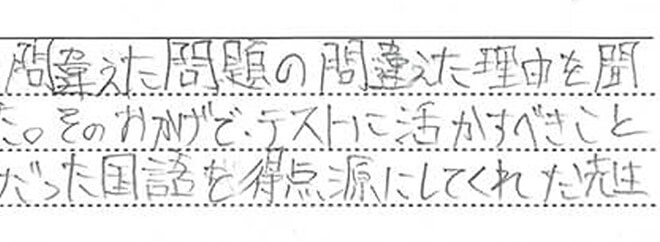 問違えた問題の問違えた理由を聞
た。そのおかげで、テストに活かすべきこと
だった国語を得点源にしてくれた先生